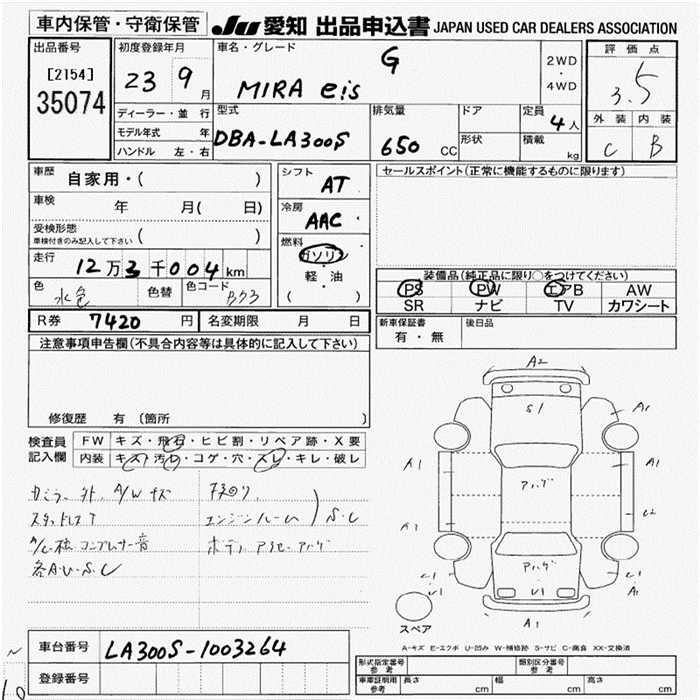 車内保管・守衛保管 JU 愛知 出品申込書 JAPAN USED CAR DEALERS ASSOCIATION
出品番号 初度登録年月 車名・グレード G 2WD ・ 4WD 評価点
[2154] 35074 23 9月 MIRA eis 3.5
ディーラー・並行 型式 排気量 ドア 定員 4人 外装 内装
モデル年式 年 DBA-LA300S 650 CC 形状 積載 kg C B
ハンドル 左・右
車歴 自家用・( ) シフト AT セールスポイント(正常に機能するものに限ります)
車検 年 月( 日) 冷房 AAC
受検形態 車検付きのみ記入して下さい ( ) 燃料 ガソリン
走行 12万3千004km 軽・油 装備品(純正品に限り○をつけてください)
色 水色 色替 色コード B73 ( ) PS PW エアB AW
SR ナビ TV カワシート
R券 7420円 名変期限 月 日 新車保証書 有・無 後日品
注意事項申告欄(不具合内容等は具体的に記入して下さい)
修復歴 有 〔箇所 〕
検査員記入欄 FW キズ・飛石・ヒビ割・リペア跡・X要
内装 キズ・汚レ・コゲ・穴・スレ・キレ・破レ
A/W キズ 下回り
スタッドレス エンジンルーム S・C
コンプレッサー音
各A・U・S・C
A2
S1
A1
A1 A1
アハゲ
A1 C2
C1 アハゲ C1
U1 U1
A1
スペア
A-キズ E-エクボ U-凹み W-補修跡 S-サビ C-腐食 XX-交換済
車台番号 LA300S-1003264
登録番号
形式指定番号 参考 類別区分番号 参考
車庫証明用 参考 長さ cm 幅 cm 高さ cm
10